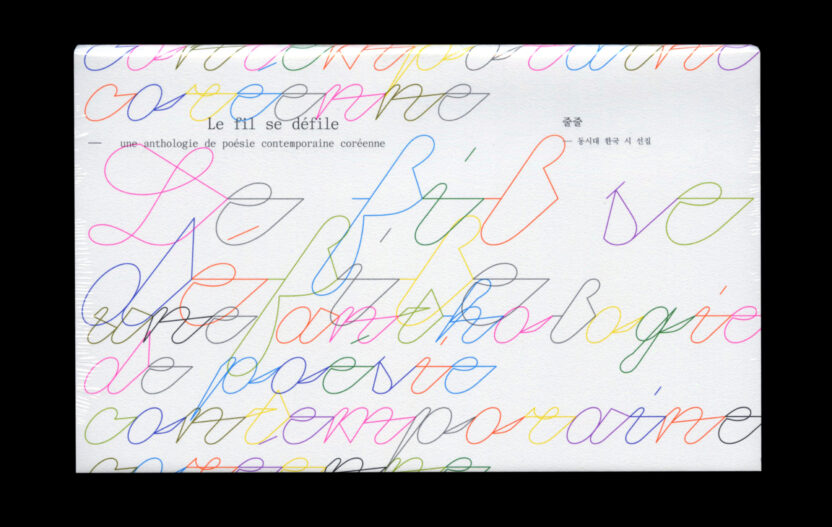 contemporaine
coréenne
Le fil se défile
줄줄
— une anthologie de poésie contemporaine coréenne
— 동시대 한국 시 선집
Le fil se
défile
une anthologie
de poésie
contemporaine
coréenne